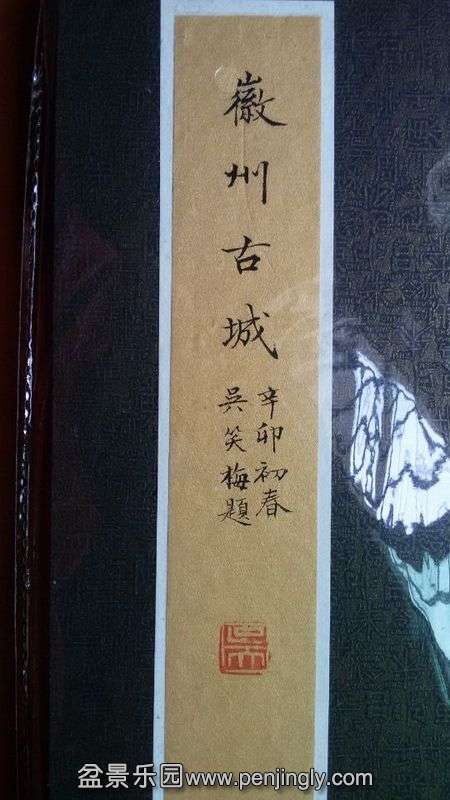 徽州古城
辛卯初春
吳笑梅題
盆景乐园www.penjingly.com